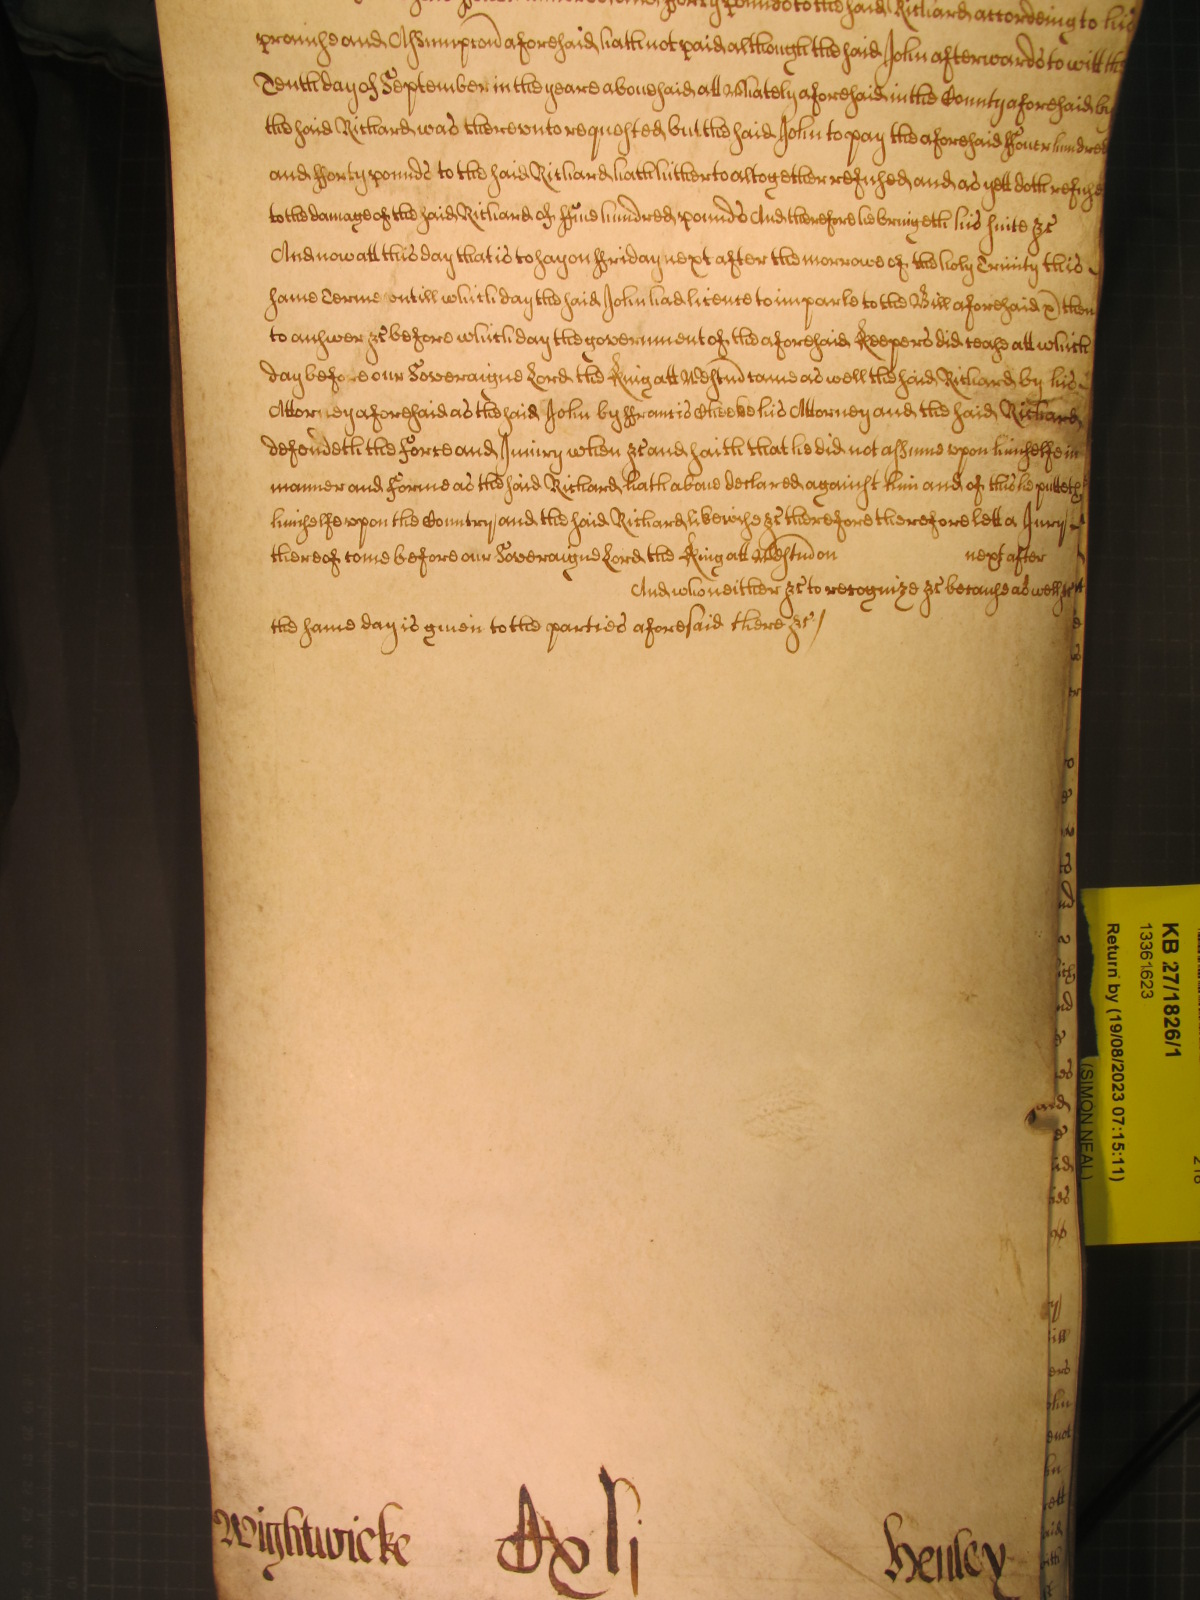 pounds to the said Richard according to his
promise and Assumpcon aforesaid hath not paid although the said John afterwards to witt the
Tenth day of September in the yeare abovesaid att Whately aforesaid in the County aforesaid by
the said Richard was therevnto requested but the said John to pay the aforesaid ffouer hundred
and fforty pounds to the said Richard hath hitherto altogether refused and as yett doth refuse
to the damage of the said Richard of ffiue hundred pounds And therefore he bringeth his suite &c
And now att this day that is to say on ffriday next after the morrowe of the holy Trinity this
same Terme vntill which day the said John had licence to imparle to the Bill aforesaid & then
to answer &c before which day the government of the aforesaid Keepers did cease att which
day before our Soveraigne Lord the King att Westm came as well the said Richard by his
Attorney aforesaid as the said John by ffrancis Cheeke his Attorney and the said Richard
defendeth the Force and Iniury when &c and saith that he did not assume vpon himselfe in
manner and Forme as the said Richard hath aboue declared against him and of this he putteth
himselfe vpon the Country and the said Richard likewise &c therefore therefore lett a Jury
thereof come before our Soveraigne Lord the King att Westm on next after
And who neither &c to recognize &c because as well &c
the same day is giuen to the parties aforesaid there &c /
Wightwicke xli Henley
KB 27/1826/1
13361623
Return by (19/08/2023 07:15:11)
(SIMON NEAL)